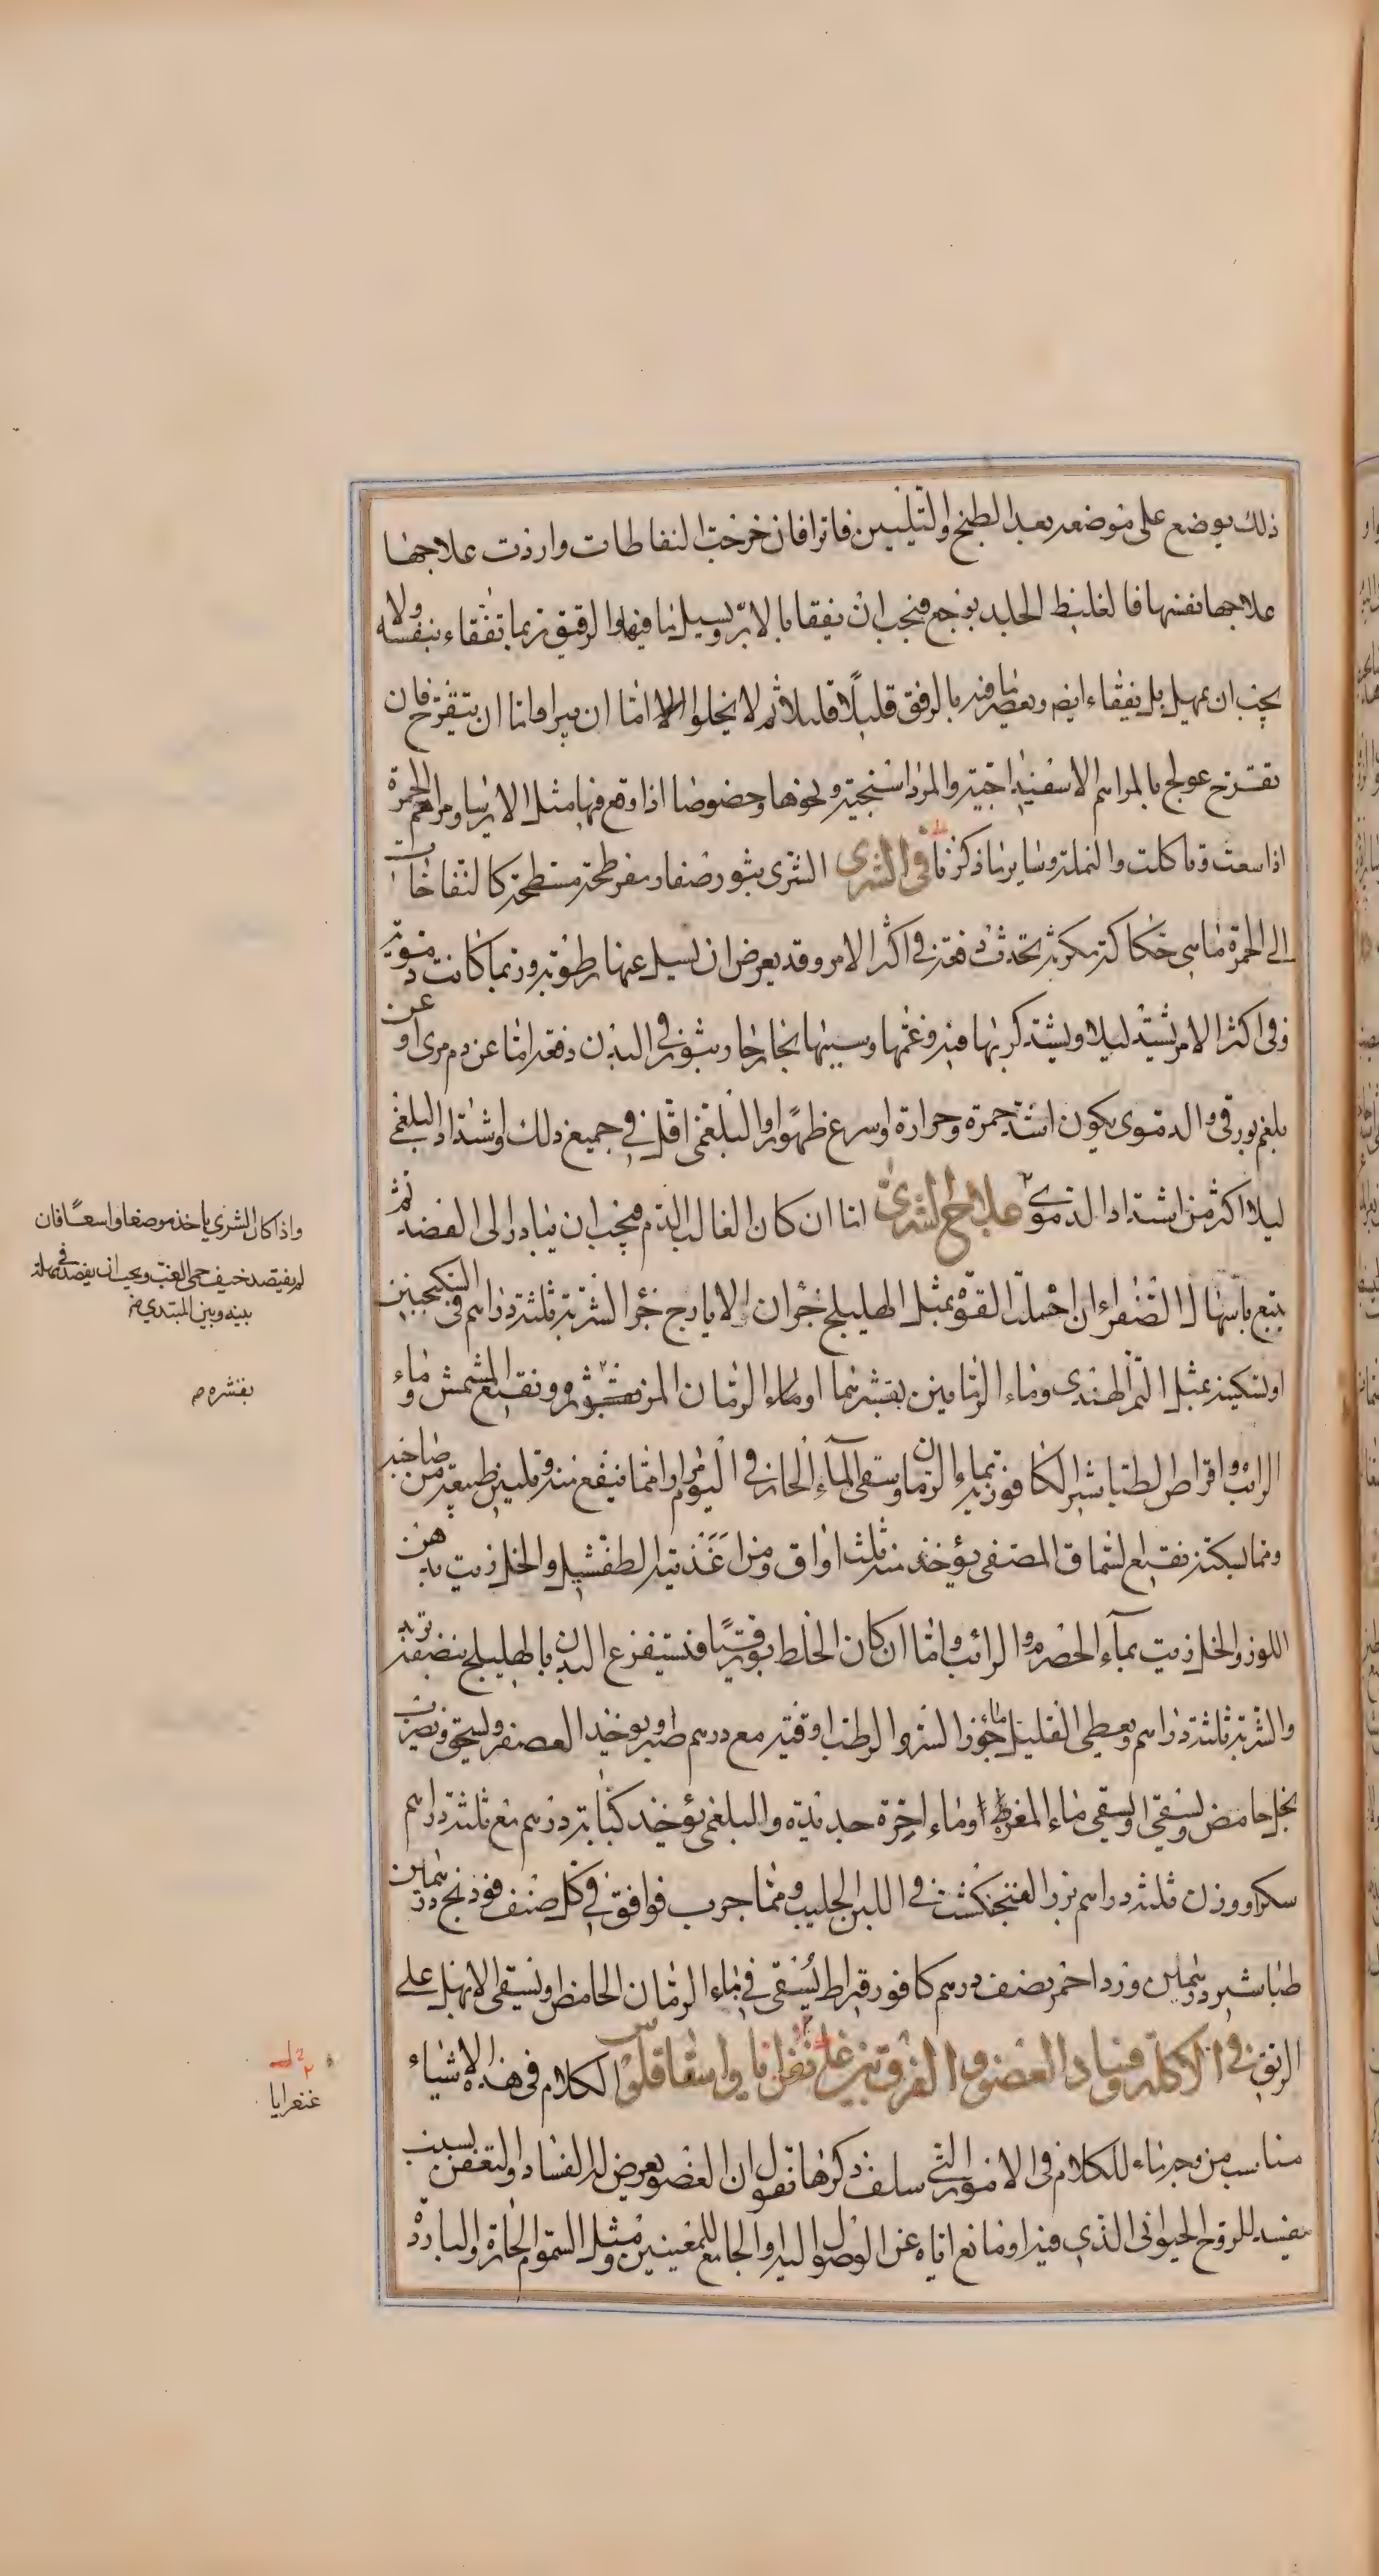 ذلك يوضع على موضعه بعد الطبخ والتليين فاترا فان خرجت النفاطات واردت علاجها
علاجها نفسها فالغليظ الجلد يوجع فيجب ان يفقا بالابر ويسيل ما فيها والرقيق ربما تفقاء بنفسه ولا
يجب ان يمهل بل يفقاء ايض ويعصر ما فيه بالرفق قليلا قليلا ثم لا يخلوا اما ان يبرا واما ان يتقرح فان
تقرح عولج بالمراهم الاسفيداجية والمرداسنجية ونحوها وخصوصا اذا وقع فيها مثل الايرسا ومراهم الجمرة
اذا سعت وتاكلت والنملة وساير ما ذكرنا في الشرى الشرى بثور صغار مفرطحة مسطحة كالنفاخات
الى الحمرة ما هي حكاكة مكربة تحدث دفعة في اكثر الامر وقد يعرض ان يسيل عنها رطوبة وربما كانت دموية
وفي اكثر الامر يشتد ليلا ويشتد كربها فيه وغمها وسببها بخار حار يثور في البدن دفعة اما عن دم مرى او عن
بلغم بورقي والدموى يكون اشد حمرة وحرارة واسرع ظهورا والبلغمى اقل في جميع ذلك واشتداد البلغمى
ليلا اكثر من اشتداد الدموى علاج الشرى اما ان كان الغالب الدم فيجب ان يبادر الى الفصد ثم
يتبع باسهال الصفراء ان احتملت القوة بمثل الهليلج جزان الايارج جزء الشربة ثلثة دراهم في السكنجبين
او تسكينه بمثل التمر الهندى وماء الرمانين بقشرهما او ماء الرمان المز ونقيع المشمش وماء
الرائب واقراص الطباشير الكافورية بماء الرمان وسقى الماء الحار في اليوم مرارا مما ينفع منه وتليين طبيعة من صاحبه
ومما يسكنه نقيع السماق المصفى يؤخذ منه ثلث اواق ومن اغذيته الطفشيل والخل زيت بدهن
اللوز والخل زيت بماء الحصرم والرائب واما ان كان الخلط بورقيا فنستفرغ البدن بالهليلج بنصفه تربد
والشربة ثلثة دراهم ويعطى القليل ماء جوز السرو الرطب اوقية مع درهم صبر ويوخذ العصفر ويسحق ويضرب
بخل حامض ويسقى او يسقى ماء المغرة او ماء اجرة جديدة والبلغمى يؤخذ كبابة درهم مع ثلثة دراهم
سكر او وزن ثلثة دراهم بزر الفنجنكشت في اللبن الحليب ومما جرب فوافق في كل صنف فودنج درهمين
طباشير درهمين ورد احمر نصف درهم كافور قيراط يسقى في ماء الرمان الحامض او يسقى الابهل على
الريق في الاكلة وفساد العضو والفرق بين غانغرانا واسفاقلوس الكلام في هذه الاشياء
مناسب من وجه ما للكلام في الامور التي سلف ذكرها نقول ان العضو يعرض له الفساد والتعفن بسبب
مفسد للروح الحيوانى الذي فيه او مانع اياه عن الوصول اليه او الجامع للمعنيين ومثل السموم الحارة والباردة
واذا كان الشرى ياخذ موضعا واسعا فان
لم يفتصد خيف حمى الغب ويجب ان يفصد في مهلة
بينه وبين المبتدي ضر
بقشره م
غنغرايا